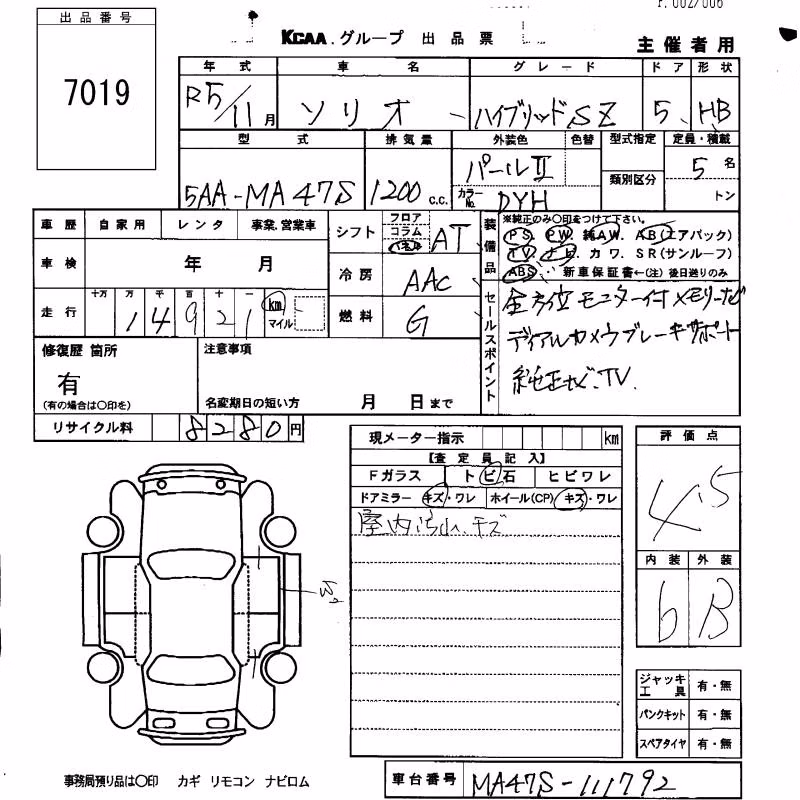 出品番号
7019
KCAA.グループ 出品票
主催者用
年式 車名 グレード ドア 形状
R5/11月 ソリオ ハイブリッドSZ 5 HB
型式 排気量 外装色 色替 型式指定 定員・積載
5AA-MA47S 1200 c.c. パールⅡ 類別区分 5名
カラーNo. DYH トン
車歴 自家用 レンタ 事業.営業車
シフト フロア コラム AT
装備品
※純正のみ○印をつけて下さい。
PS. PW 純AW. AB(エアバック)
TV ナビ. カワ. SR(サンルーフ)
ABS 新車保証書←(注)後日送りのみ
車検 年 月
冷房 AAC
走行 十万 万 千 百 十 一
14921 km マイル
燃料 G
セールスポイント
全方位モニター付メモリーナビ
デュアルカメラブレーキサポート
純正ナビ.TV.
修復歴 箇所
有
(有の場合は○印を)
注意事項
名変期日の短い方 月 日まで
リサイクル料 8280円
現メーター指示 km
【査定員記入】
Fガラス トビ石 ヒビワレ
ドアミラー キズ・ワレ ホイール(CP) キズ・ワレ
室内汚れ.キズ
評価点
4.5
内装 外装
6 B
ジャッキ工具 有・無
パンクキット 有・無
スペアタイヤ 有・無
事務局預り品は○印 カギ リモコン ナビロム
車台番号 MA47S-111792